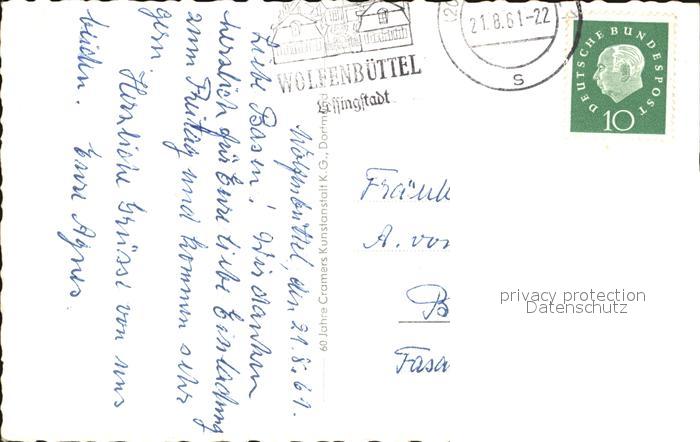 Wolfenbüttel, den 21.8.61.
Liebe Basen! Wir danken
herzlich für Eure liebe Einladung
zum Freitag und kommen sehr
gern.
Herzliche Grüsse von uns
beiden. Eure Agnes.
60 Jahre Cramers Kunstanstalt K.G., Dortmund
WOLFENBÜTTEL
Lessingstadt
21.8.61-22
S
DEUTSCHE BUNDESPOST
10
Fräule
A. von
B
Fasa
privacy protection
Datenschutz